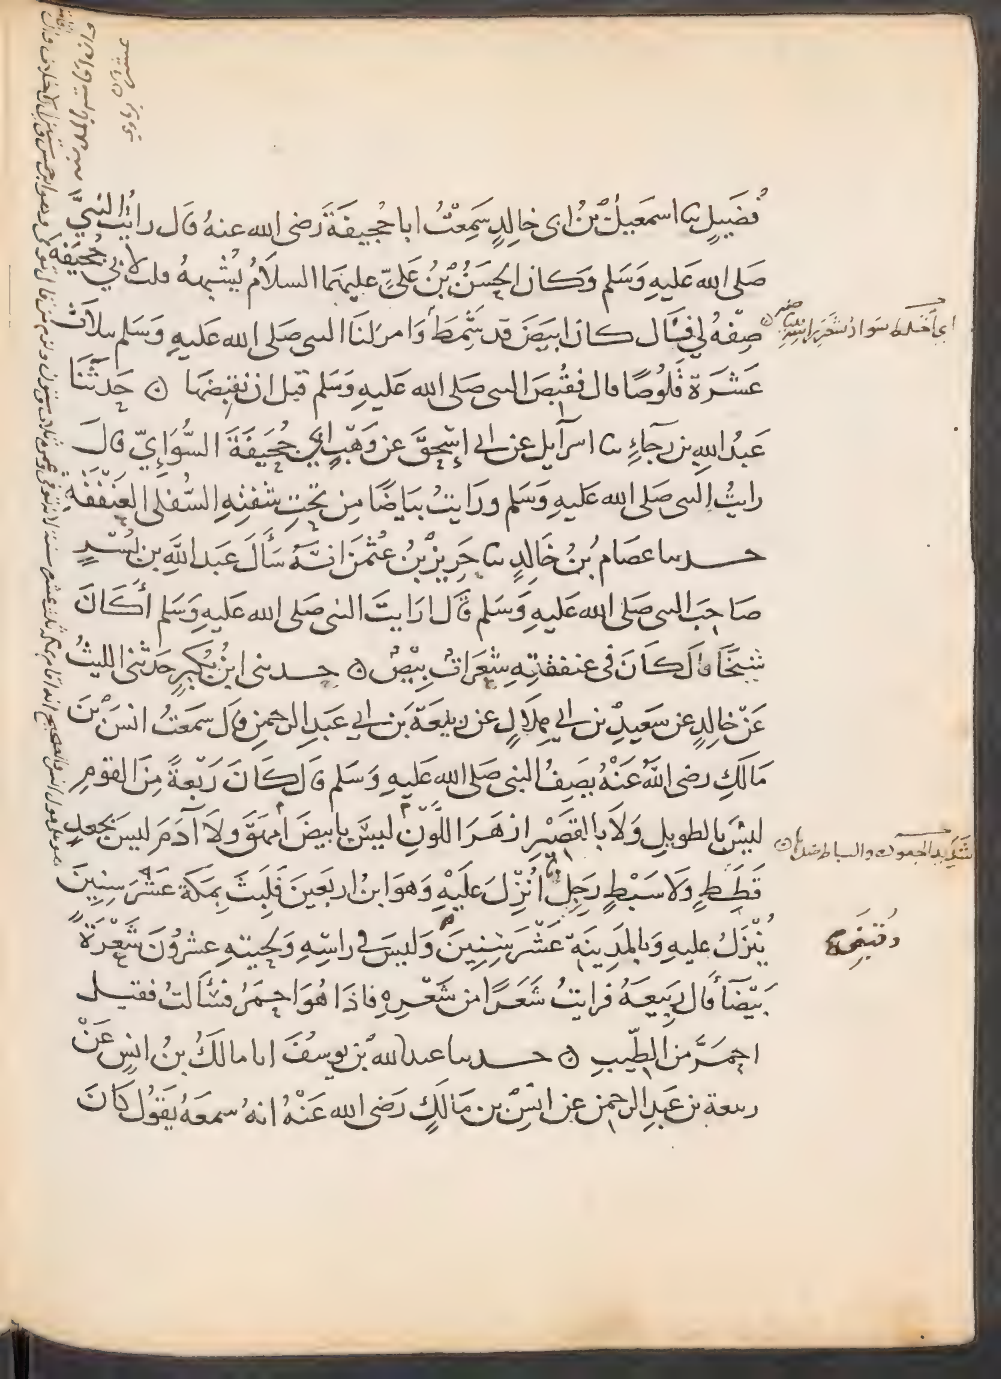 فُضَيلٍ ثنا اسمَعيلُ بْنُ ابى خالدٍ سَمِعْتُ ابا جُحَيفَةَ رَضى الله عنهُ قَال رايْتُ النبيَّ
صَلى الله عَليهِ وَسَلم وَكان الحسَنُ بْنُ عَليٍّ عليهمَا السلَامُ يُشبههُ قلت لابي جُحَيفَةَ
صِفْهُ لي قال كانَ ابيَضَ قد شَمِطَ وَامر لنَا النبى صَلى الله عَليهِ وَسَلم بثلاثَ
عَشرَةَ قَلُوصًا قال فقُبِضَ النبى صَلى الله عَليهِ وَسَلم قبل ان نقبضَهَا ۞ حَدثَنَا
عَبدُ اللهِ بن رجَاءٍ ثنا اسرآيل عن ابى إسْحقَ عن وَهْبٍ ابى جُحَيفَةَ السُّوَايِيّ قالَ
رايتُ النبى صَلى الله عَليهِ وَسَلم ورَايتُ بيَاضًا مِن تحتِ شفتِهِ السُّفلى العَنْفَقَةَ
حدثنا عصَامُ بْنُ خَالدٍ ثنا حَرِيزُ بْنُ عُثمنَ انهُ سَألَ عَبدَ اللهِ بن بُسْرٍ
صَاحِبَ النبى صَلى الله عَليهِ وَسَلم قَال ارَايتَ النبى صَلى الله عَليهِ وَسَلم أكَانَ
شيخًا قال كَانَ فى عنفقتِهِ شعَرَاتٌ بِيْضٌ ۞ حدثنى ابنُ بُكَيرٍ حَدثنى الليثُ
عَنْ خالدٍ عن سَعيدِ بْن ابى هِلَالٍ عن رَبيعَةَ بْن ابى عَبدِ الرحمنِ قال سَمعتُ انسَ بْنَ
مَالكٍ رضى اللهُ عَنْهُ يصِفُ النبى صَلى الله عَليهِ وَسَلم قَال كَانَ رَبْعَةً مِنَ القومِ
ليسَ بالطويلِ وَلَا بالقَصِيْرِ ازهَرَ اللَّوْنِ ليسَ بابيضَ امْهَقَ ولَا آدَمَ ليسَ بجَعدٍ
قَطَطٍ وَلَا سَبْطٍ رَجِلٍ انْزِلَ عَليْهِ وَهوَ ابنُ اربَعينَ فلبثَ بمَكةَ عَشْرَ سِنِينَ
يُنْزَلُ عليهِ وَبالمَدِينَةِ عَشْرَ سِنِينَ وَليسَ فى راسِهِ وَلحيَتهِ عشرُونَ شَعْرَةً
بَيْضَآءَ قال رَبِيعَةُ فرايتُ شَعَرًا من شَعْرِهِ فاذَا هُوَ احمَرُ فسَألتُ فقيل
احمَرَّ منَ الطِّيبِ ۞ حدثنا عبد اللهِ بْن يوسُفَ انا مالكُ بنُ انسٍ عَنْ
ربيعة بن عَبدِ الرحمن عن انسِ بن مَالكٍ رَضى الله عَنْهُ انهُ سمعَهُ يَقُولُ كَانَ
اى اختلط سَوادُ شَعَرِ راسه
شَدِيد الجعودة والسباط ضدها
وَقُبِضَ